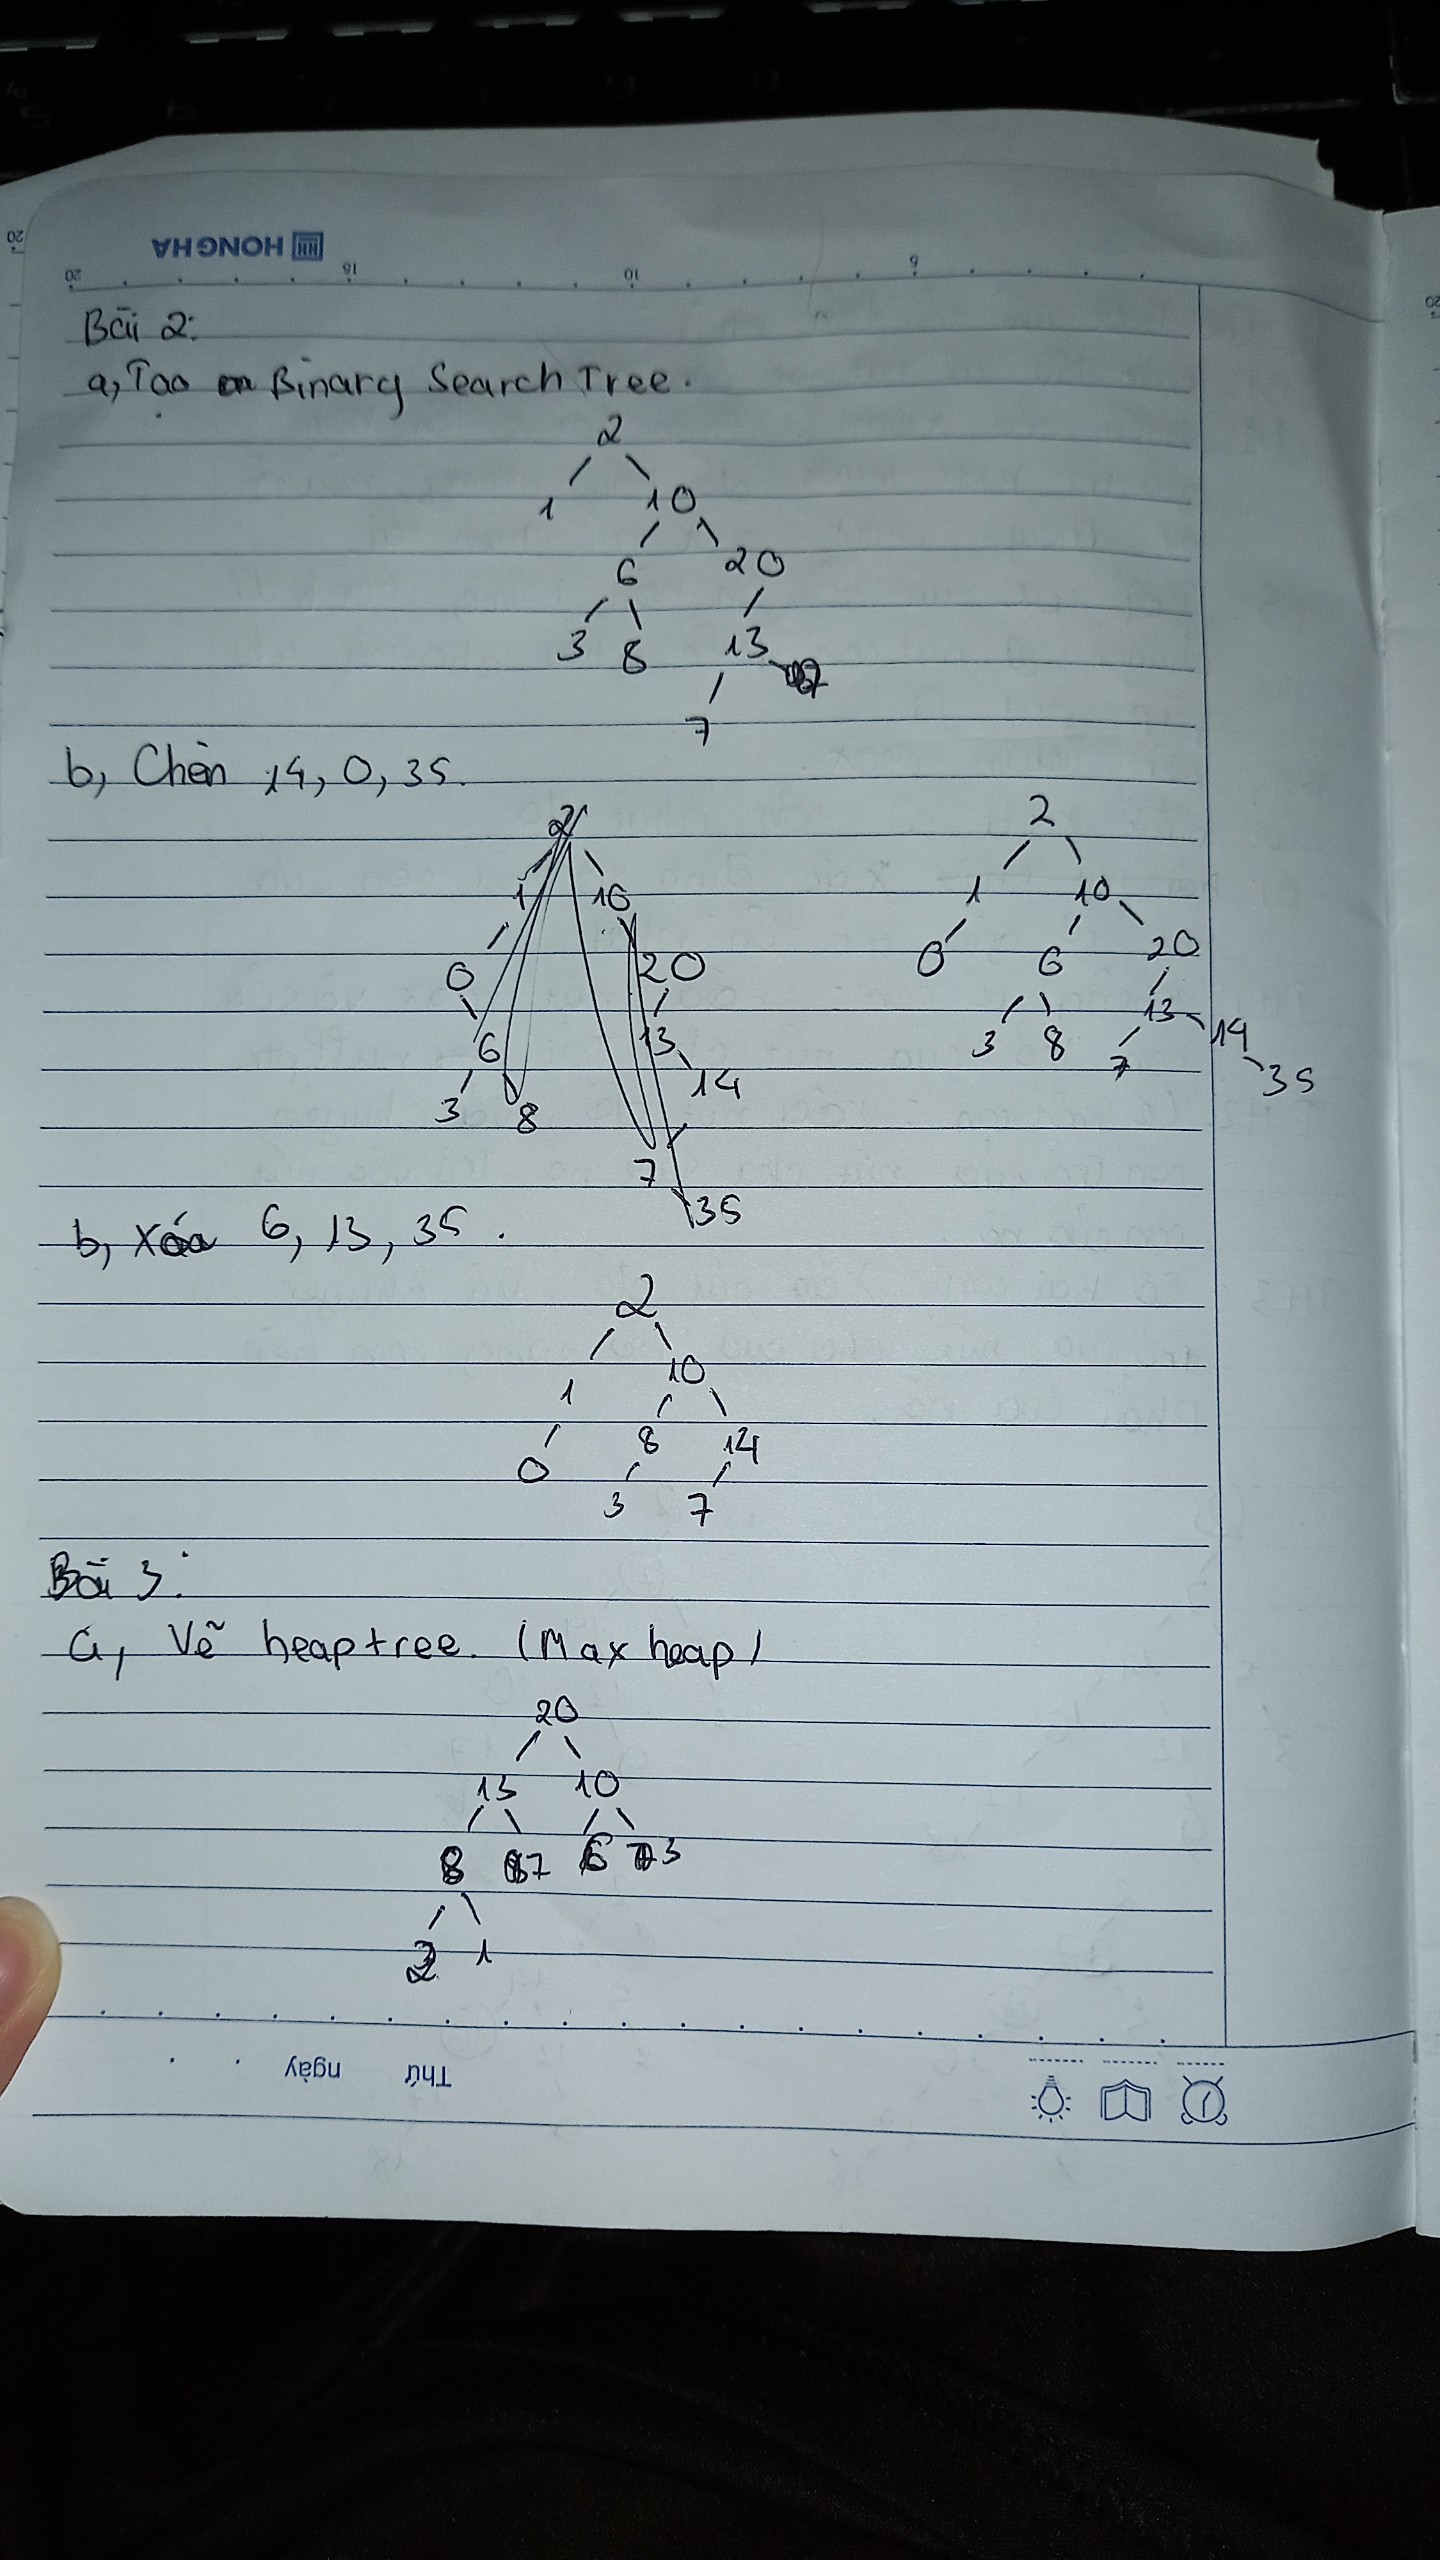 HONG HA
20 15 10 5
Bài 2:
a, Tạo Binary Search Tree.
2
1 10
6 20
3 8 13
7
b, Chèn 14, 0, 35.
2
1 10
0 20
6 13
3 8 14
7
35
2
1 10
0 6 20
3 8 7 13 14
35
b, Xóa 6, 13, 35.
2
1 10
0 8 14
3 7
Bài 3:
a, Vẽ heap tree. (Max heap)
20
13 10
8 7 6 3
2 1
Thứ ngày